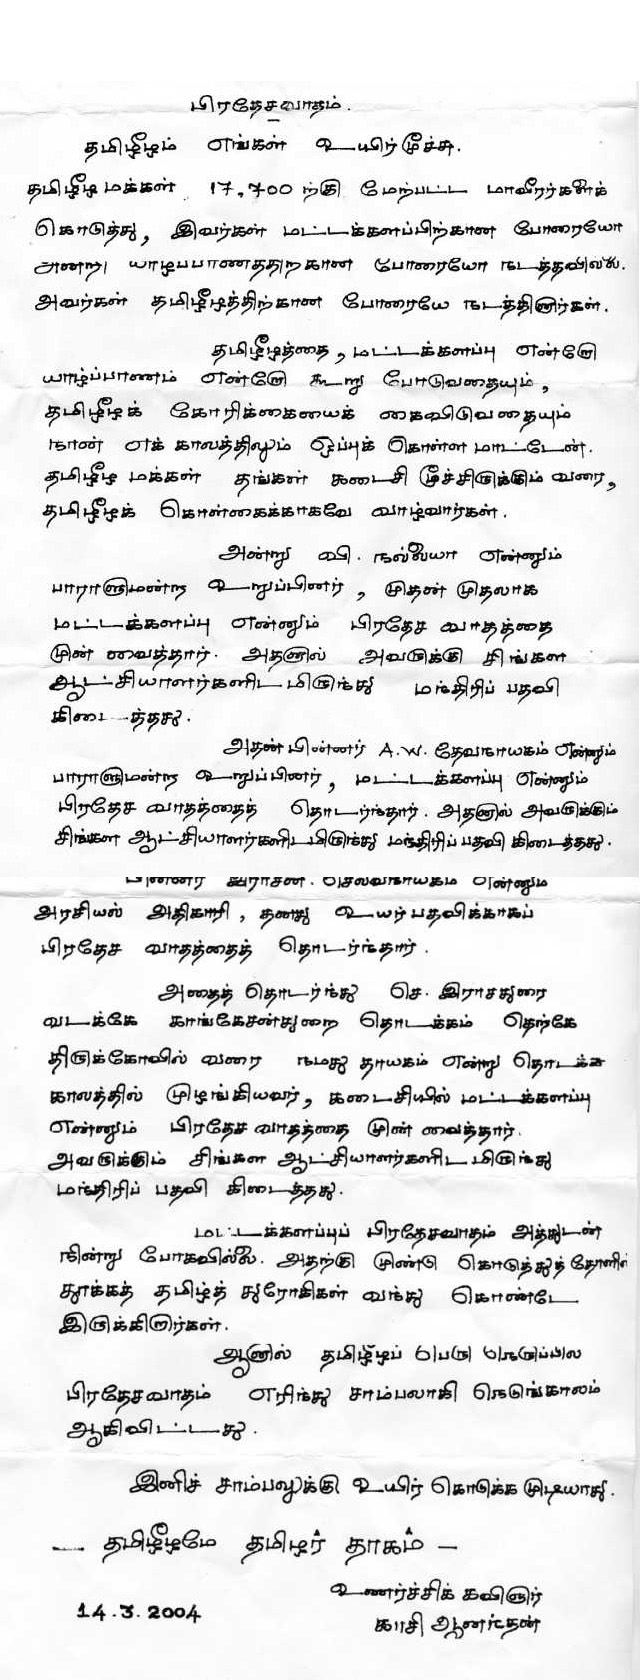 பிரதேசவாதம்.
தமிழீழம் எங்கள் உயிர்மூச்சு.
தமிழீழ மக்கள் 17,700 ற்கு மேற்பட்ட மாவீரர்களைக்
கொடுத்து, இவர்கள் மட்டக்களப்பிற்கான போரையோ
அன்றி யாழ்ப்பாணத்திற்கான போரையோ நடத்தவில்லை.
அவர்கள் தமிழீழத்திற்கான போரையே நடத்தினார்கள்.
தமிழீழத்தை, மட்டக்களப்பு என்றோ
யாழ்ப்பாணம் என்றோ கூறு போடுவதையும்,
தமிழீழக் கோரிக்கையைக் கைவிடுவதையும்
நான் எக் காலத்திலும் ஒப்புக் கொள்ள மாட்டேன்.
தமிழீழ மக்கள் தங்கள் கடைசி மூச்சிருக்கும் வரை,
தமிழீழக் கொள்கைக்காகவே வாழ்வார்கள்.
அன்று வி. நல்லையா என்னும்
பாராளுமன்ற உறுப்பினர், முதன் முதலாக
மட்டக்களப்பு என்னும் பிரதேச வாதத்தை
முன் வைத்தார். அதனால் அவருக்கு சிங்கள
ஆட்சியாளர்களிடமிருந்து மந்திரிப் பதவி
கிடைத்தது.
அதன் பின்னர் A.W. தேவநாயகம் என்னும்
பாராளுமன்ற உறுப்பினர், மட்டக்களப்பு என்னும்
பிரதேச வாதத்தைத் தொடர்ந்தார். அதனால் அவருக்கும்
சிங்கள ஆட்சியாளர்களிடமிருந்து மந்திரிப் பதவி கிடைத்தது.
பின்னர் இராசன். செல்வநாயகம் என்னும்
அரசியல் அதிகாரி, தனது உயர் பதவிக்காகப்
பிரதேச வாதத்தைத் தொடர்ந்தார்.
அதைத் தொடர்ந்து செ. இராசதுரை
வடக்கே காங்கேசன்துறை தொடக்கம் தெற்கே
திருக்கோவில் வரை நமது தாயகம் என்று தொடக்க
காலத்தில் முழங்கியவர், கடைசியில் மட்டக்களப்பு
என்னும் பிரதேச வாதத்தை முன் வைத்தார்.
அவருக்கும் சிங்கள ஆட்சியாளர்களிடமிருந்து
மந்திரிப் பதவி கிடைத்தது.
மட்டக்களப்புப் பிரதேசவாதம் அத்துடன்
நின்று போகவில்லை. அதற்கு முண்டு கொடுத்துத் தோளில்
தூக்கத் தமிழ்த் துரோகிகள் வந்து கொண்டே
இருக்கிறார்கள்.
ஆனால் தமிழீழப் பெரு நெருப்பில
பிரதேசவாதம் எரிந்து சாம்பலாகி நெடுங்காலம்
ஆகிவிட்டது.
இனிச் சாம்பலுக்கு உயிர் கொடுக்க முடியாது.
— தமிழீழமே தமிழர் தாகம் —
உணர்ச்சிக் கவிஞர்
14.3.2004 காசி ஆனந்தன்